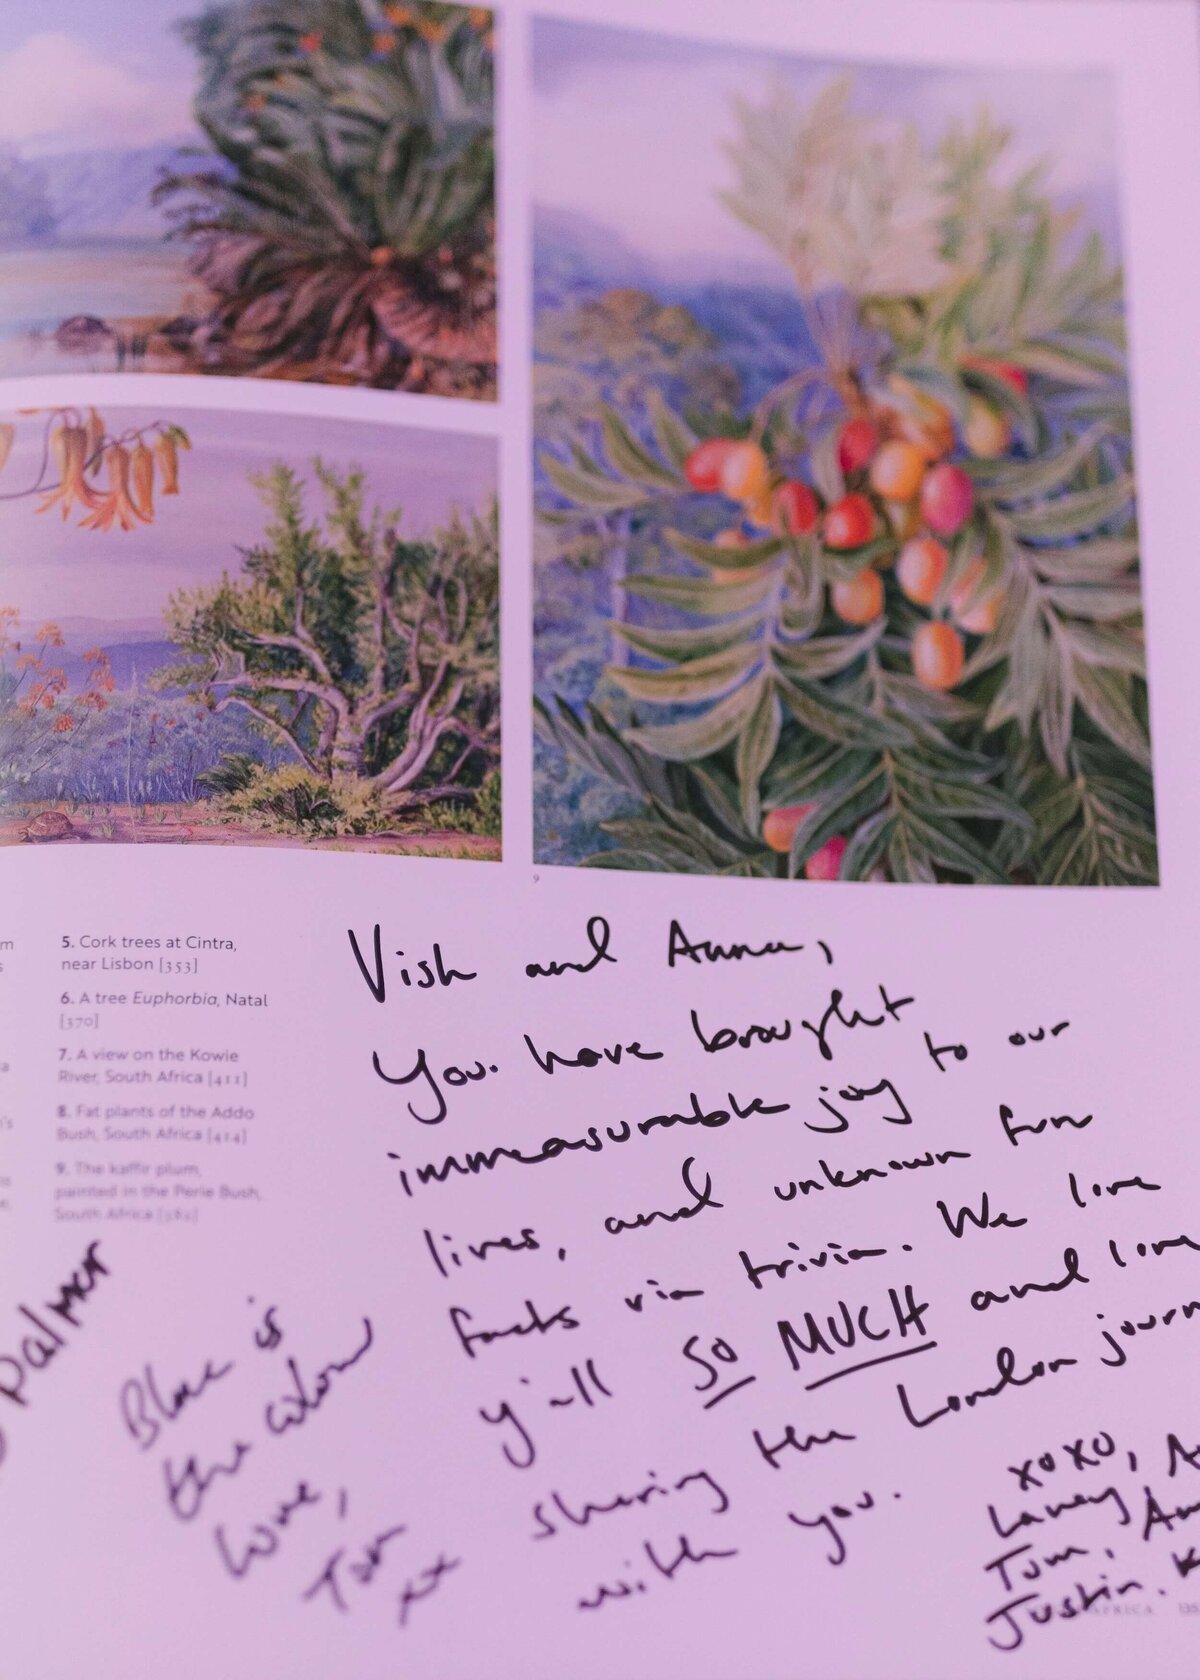 9
m
s
a
's
5. Cork trees at Cintra,
near Lisbon [353]
6. A tree Euphorbia, Natal
[370]
7. A view on the Kowie
River, South Africa [411]
8. Fat plants of the Addo
Bush, South Africa [414]
9. The kaffir plum,
painted in the Perie Bush,
South Africa
Vish and Anna,
You have brought
immeasurable joy to our
lives, and unknown fun
facts via trivia. We love
y'all SO MUCH and love
sharing the London journ
with you.
xoxo, A
Laney, An
Tom,
Justin. K
Palmer
Blue is
the colour
Love,
Tom
xx
AFRICA 135